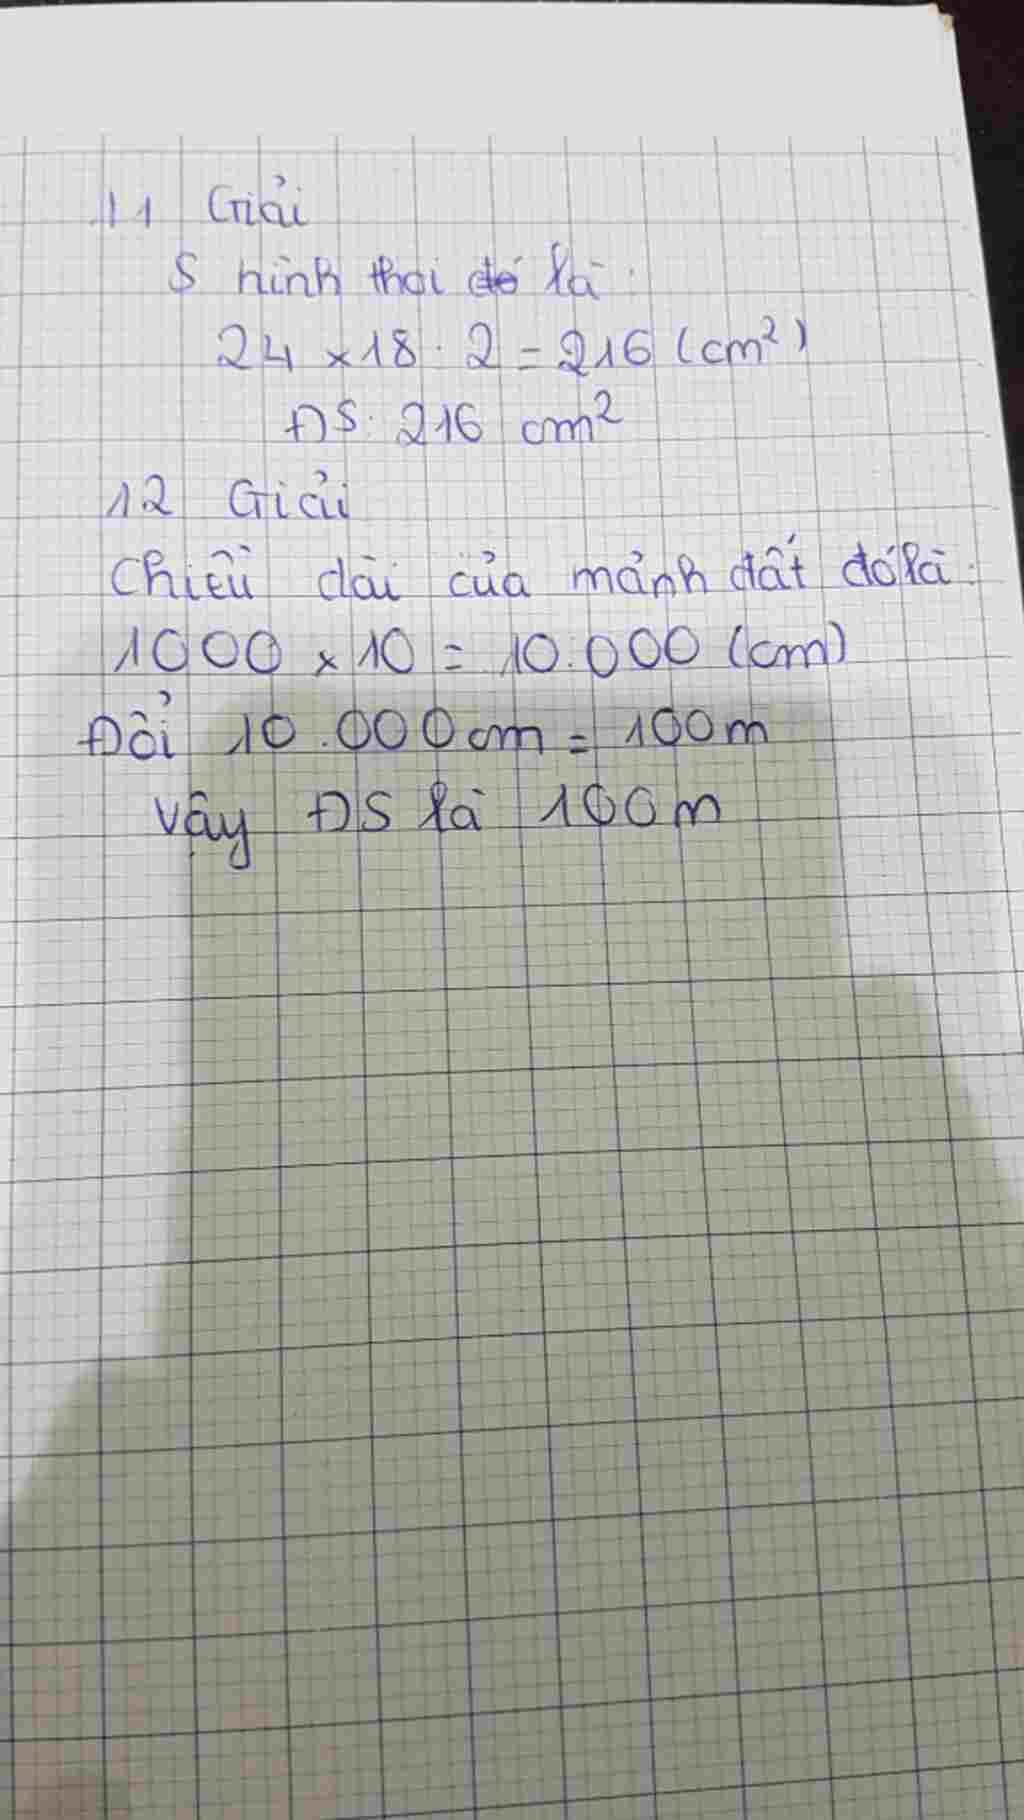 11 Giải
S hình thoi đó là:
24 x 18 : 2 = 216 (cm²)
ĐS: 216 cm²
12 Giải
Chiều dài của mảnh đất đó là:
1000 x 10 = 10.000 (cm)
Đổi 10.000cm = 100m
Vậy ĐS là 100m